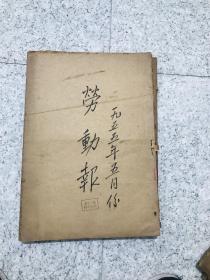 一九五五年五月份
勞動報